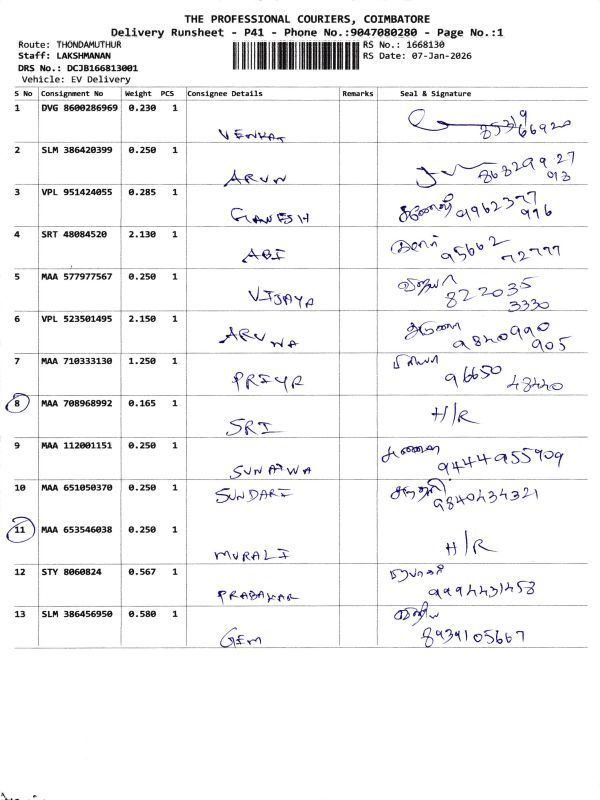 THE PROFESSIONAL COURIERS, COIMBATORE
Delivery Runsheet - P41 - Phone No.:9047080280 - Page No.:1
Route: THONDAMUTHUR RS No.: 1668130
Staff: LAKSHMANAN RS Date: 07-Jan-2026
DRS No.: DCJB166813001
Vehicle: EV Delivery
S No Consignment No Weight PCS Consignee Details Remarks Seal & Signature
1 DVG 8600286969 0.230 1
VENKAT 85319 66920
2 SLM 386420399 0.250 1
ARUN 86829927
3 VPL 951424055 0.285 1
GANESH கணேஷ் 9962377
996
4 SRT 48084520 2.130 1
ABI 95662
72777
5 MAA 577977567 0.250 1
VIJAYA விஜயா 822035
3330
6 VPL 523501495 2.150 1
ARUNA அருணா 9840990
905
7 MAA 710333130 1.250 1
PRIYA பிரியா 96650
48440
8 MAA 708968992 0.165 1 H/R
SRI
9 MAA 112001151 0.250 1
9444955909
10 MAA 651050370 0.250 1
SUNDARI சுந்தரி 9840434321
11 MAA 653546038 0.250 1
MURALI H/R
12 STY 8060824 0.567 1
PRABAKAR 9994431458
13 SLM 386456950 0.580 1
GEM 8939105667